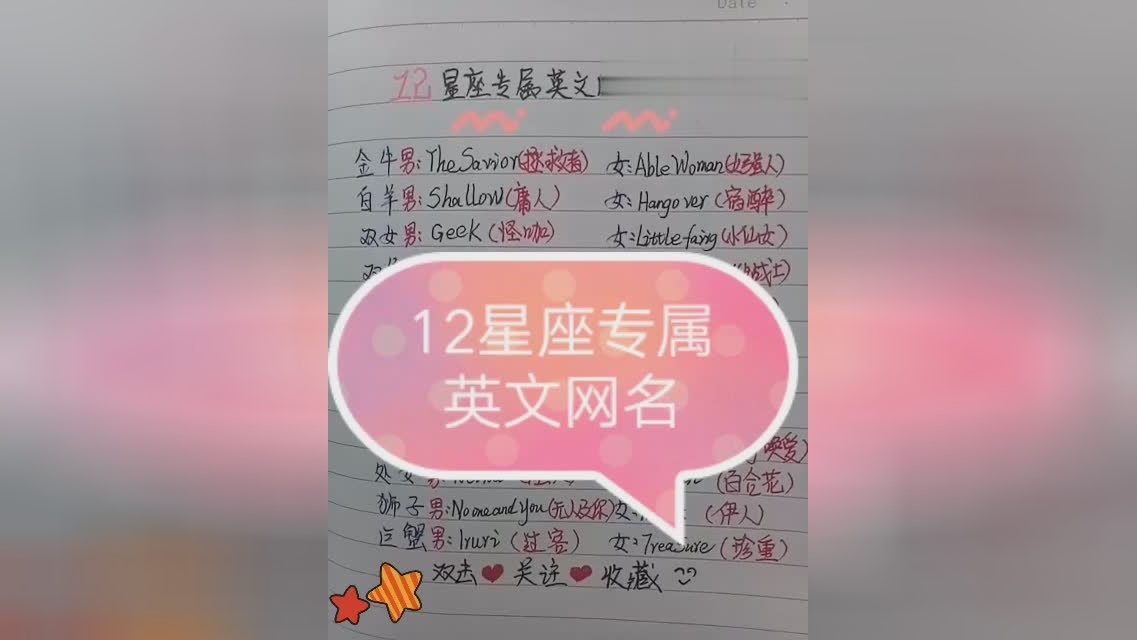 Date
12星座专属英文
金牛男:The Savior(拯救者) 女:Able Woman(女强人)
白羊男:Shallow(庸人) 女:Hangover(宿醉)
双女男:Geek(怪咖) 女:Little fairy(小仙女)
战士)
12星座专属
英文网名
唤爱)
处女男: (百合花)
狮子男:No one and You(无人及你)女: (伊人)
巨蟹男:Iruri(过客) 女:Treasure(珍重)
双击❤关注❤收藏